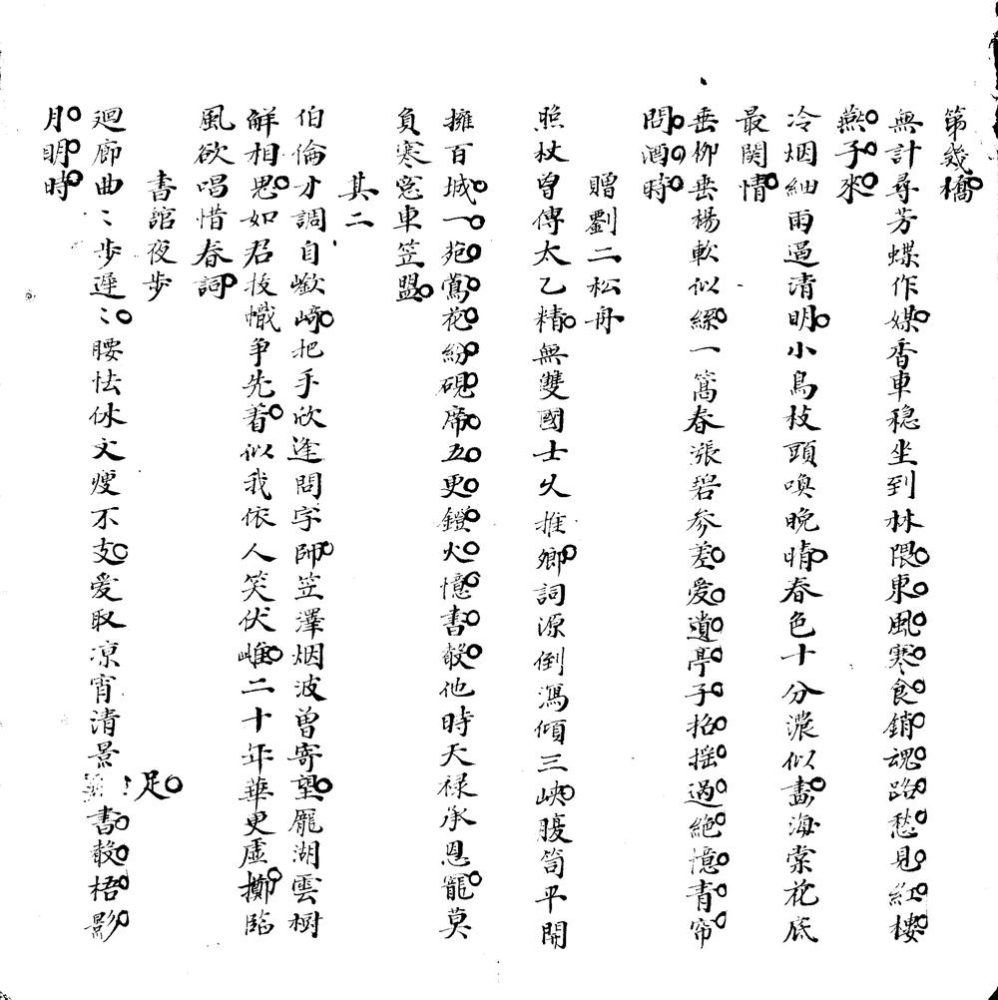 第幾橋
無計尋芳蝶作媒香車穩坐到林隈東風寒食銷魂路愁見紅樓
燕子來
冷烟細雨過清明小鳥枝頭喚晚晴春色十分濃似畫海棠花底
最関情
垂柳垂楊軟似繰一篙春漲碧參差愛遺亭子招搖過絶憶青帘
問酒時
贈劉二松舟
照杖曾傳太乙精無雙國士乆推鄉詞源倒瀉傾三峽腹笥平開
擁百城一苑鶯花紛硯席五更鐙火憶書聲他時天禄承恩寵莫
負寒窓車笠盟
其二
伯倫才調自嶔崎把手欣逢問字師笠澤烟波曾寄望龐湖雲樹
觧相思如君拔幟爭先着似我依人笑伏雌二十年華更虛擲臨
風欲唱惜春詞
書舘夜步
廻廊曲〻步遲〻腰怯休文瘦不支爱取凉宵清景足書聲梧影
月明時